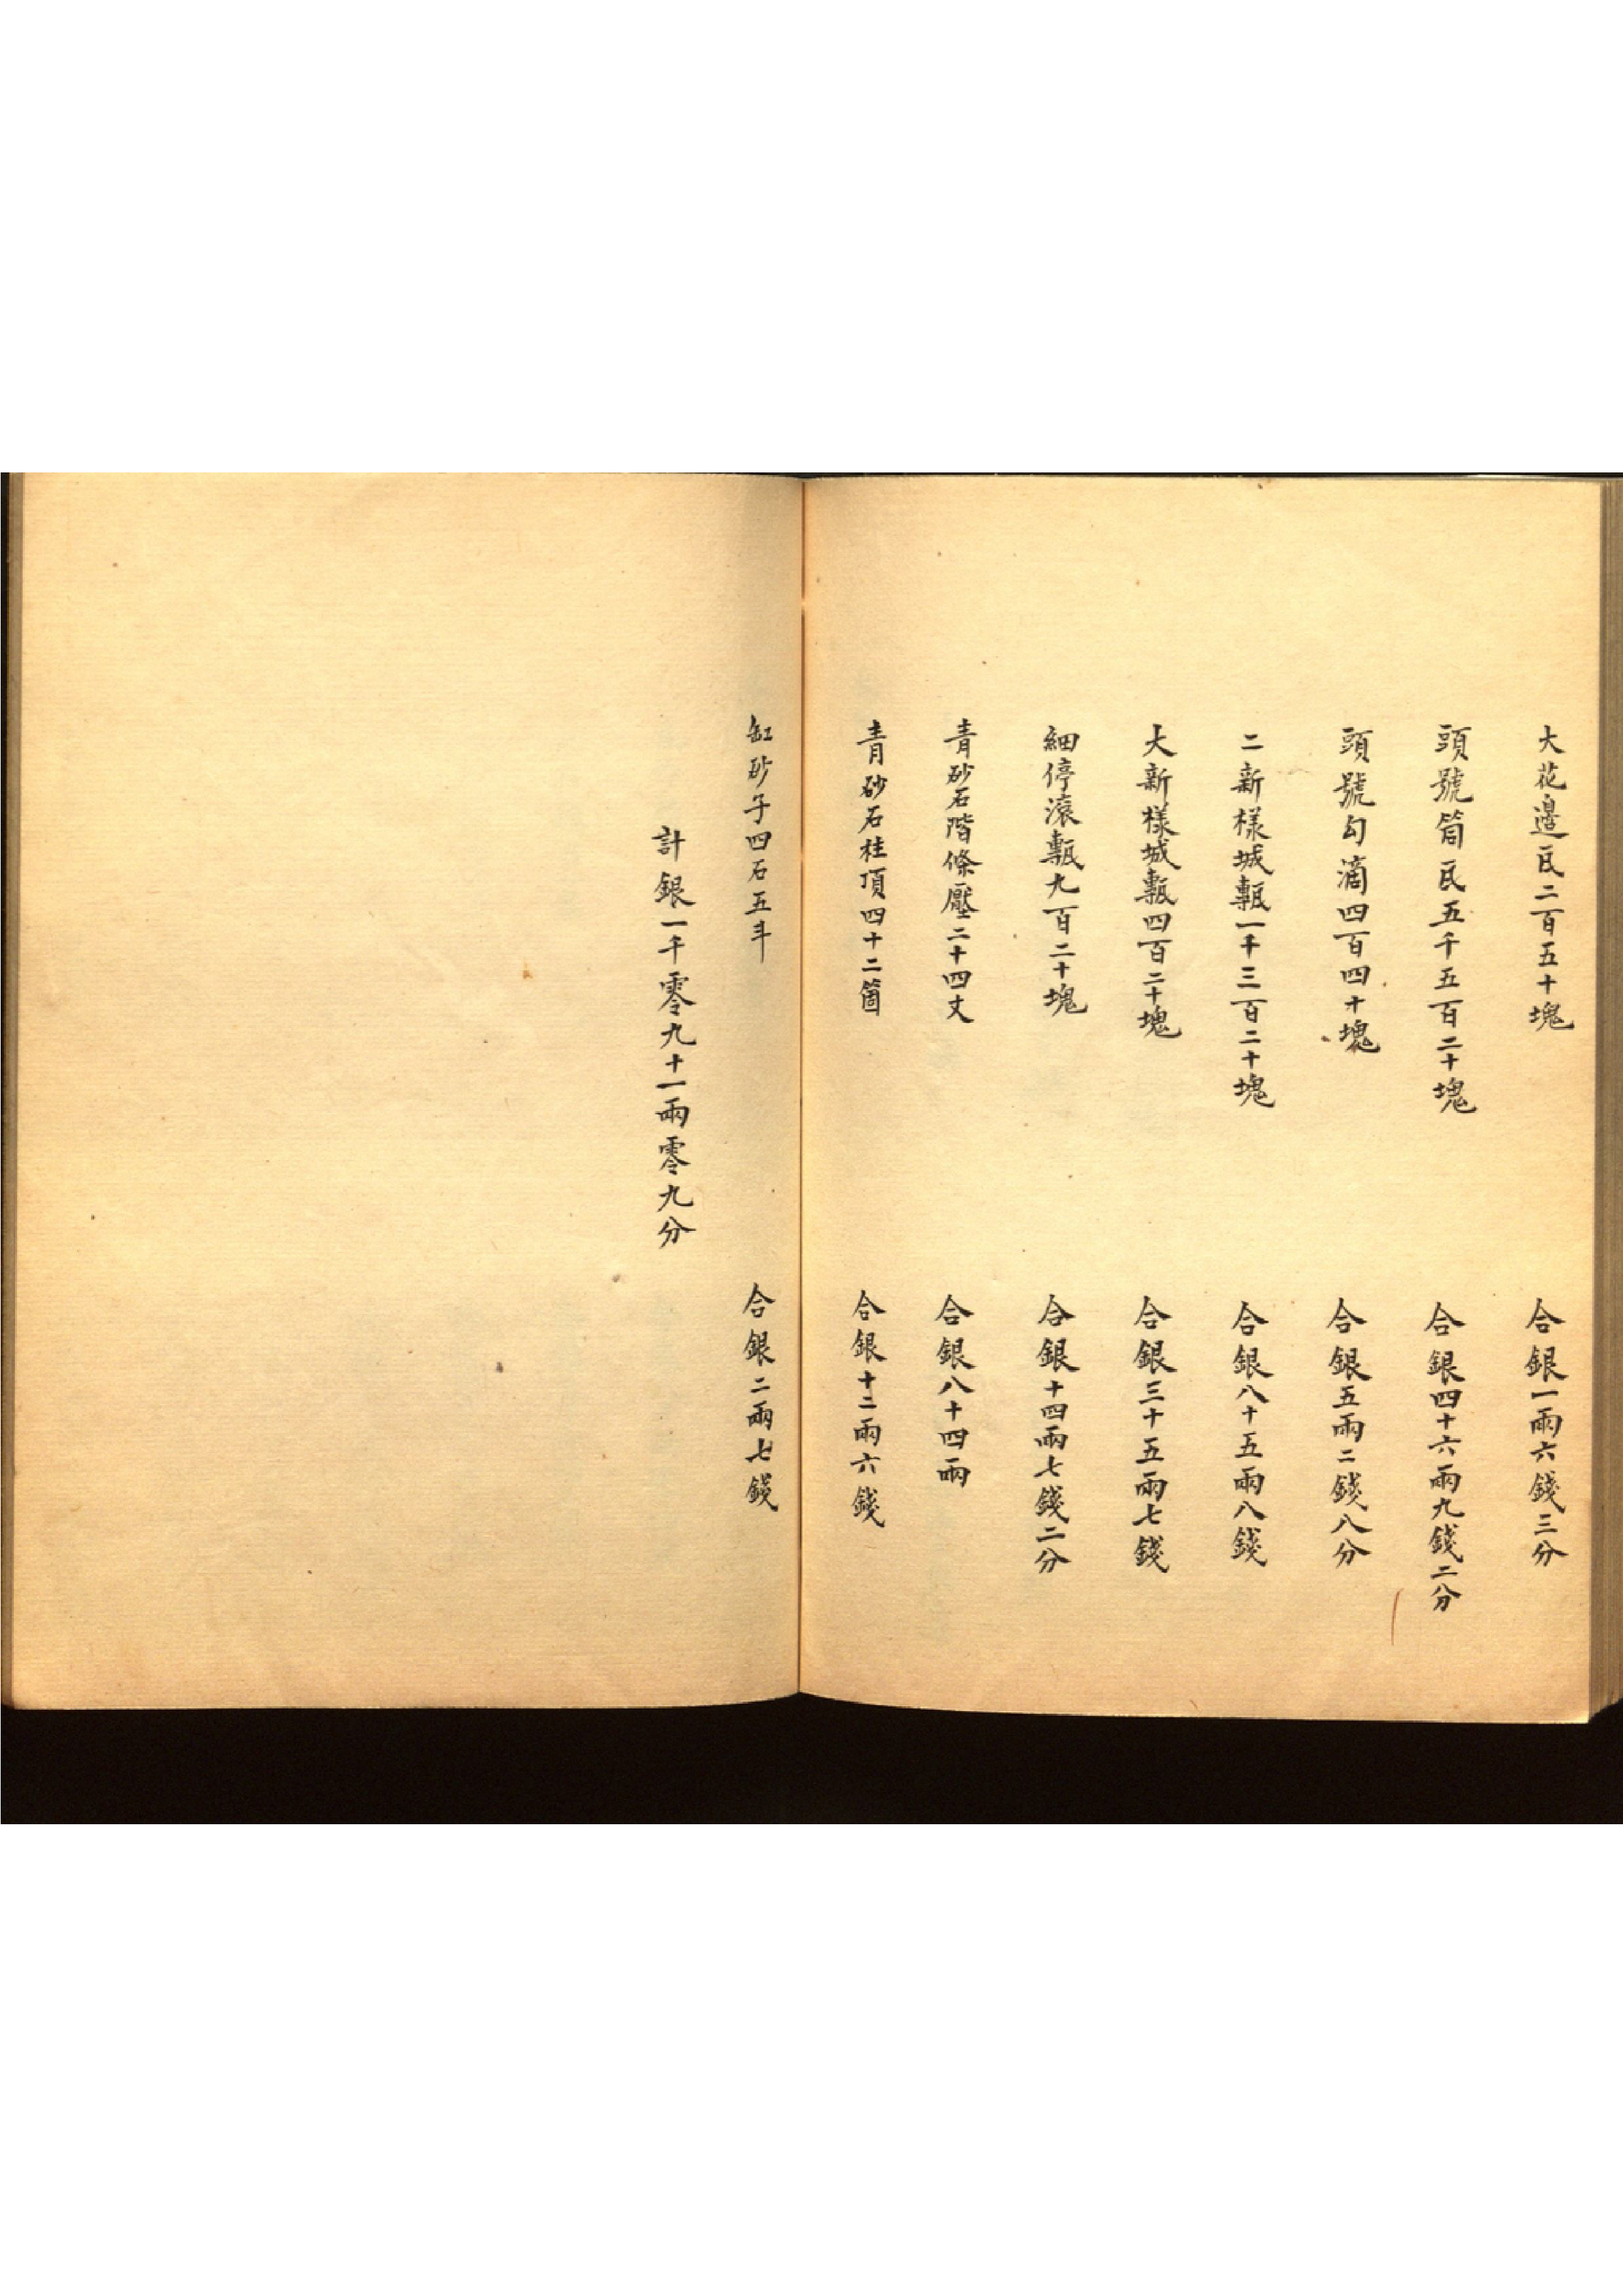 大花邊瓦二百五十塊　合銀一兩六錢三分
頭號筒瓦五千五百二十塊　合銀四十六兩九錢二分
頭號勾滴四百四十塊　合銀五兩二錢八分
二新樣城甎一千三百二十塊　合銀八十五兩八錢
大新樣城甎四百二十塊　合銀三十五兩七錢
細停滾甎九百二十塊　合銀十四兩七錢二分
青砂石階條壓二十四丈　合銀八十四兩
青砂石柱頂四十二箇　合銀十二兩六錢
缸砂子四石五斗　合銀二兩七錢
計銀一千零九十一兩零九分